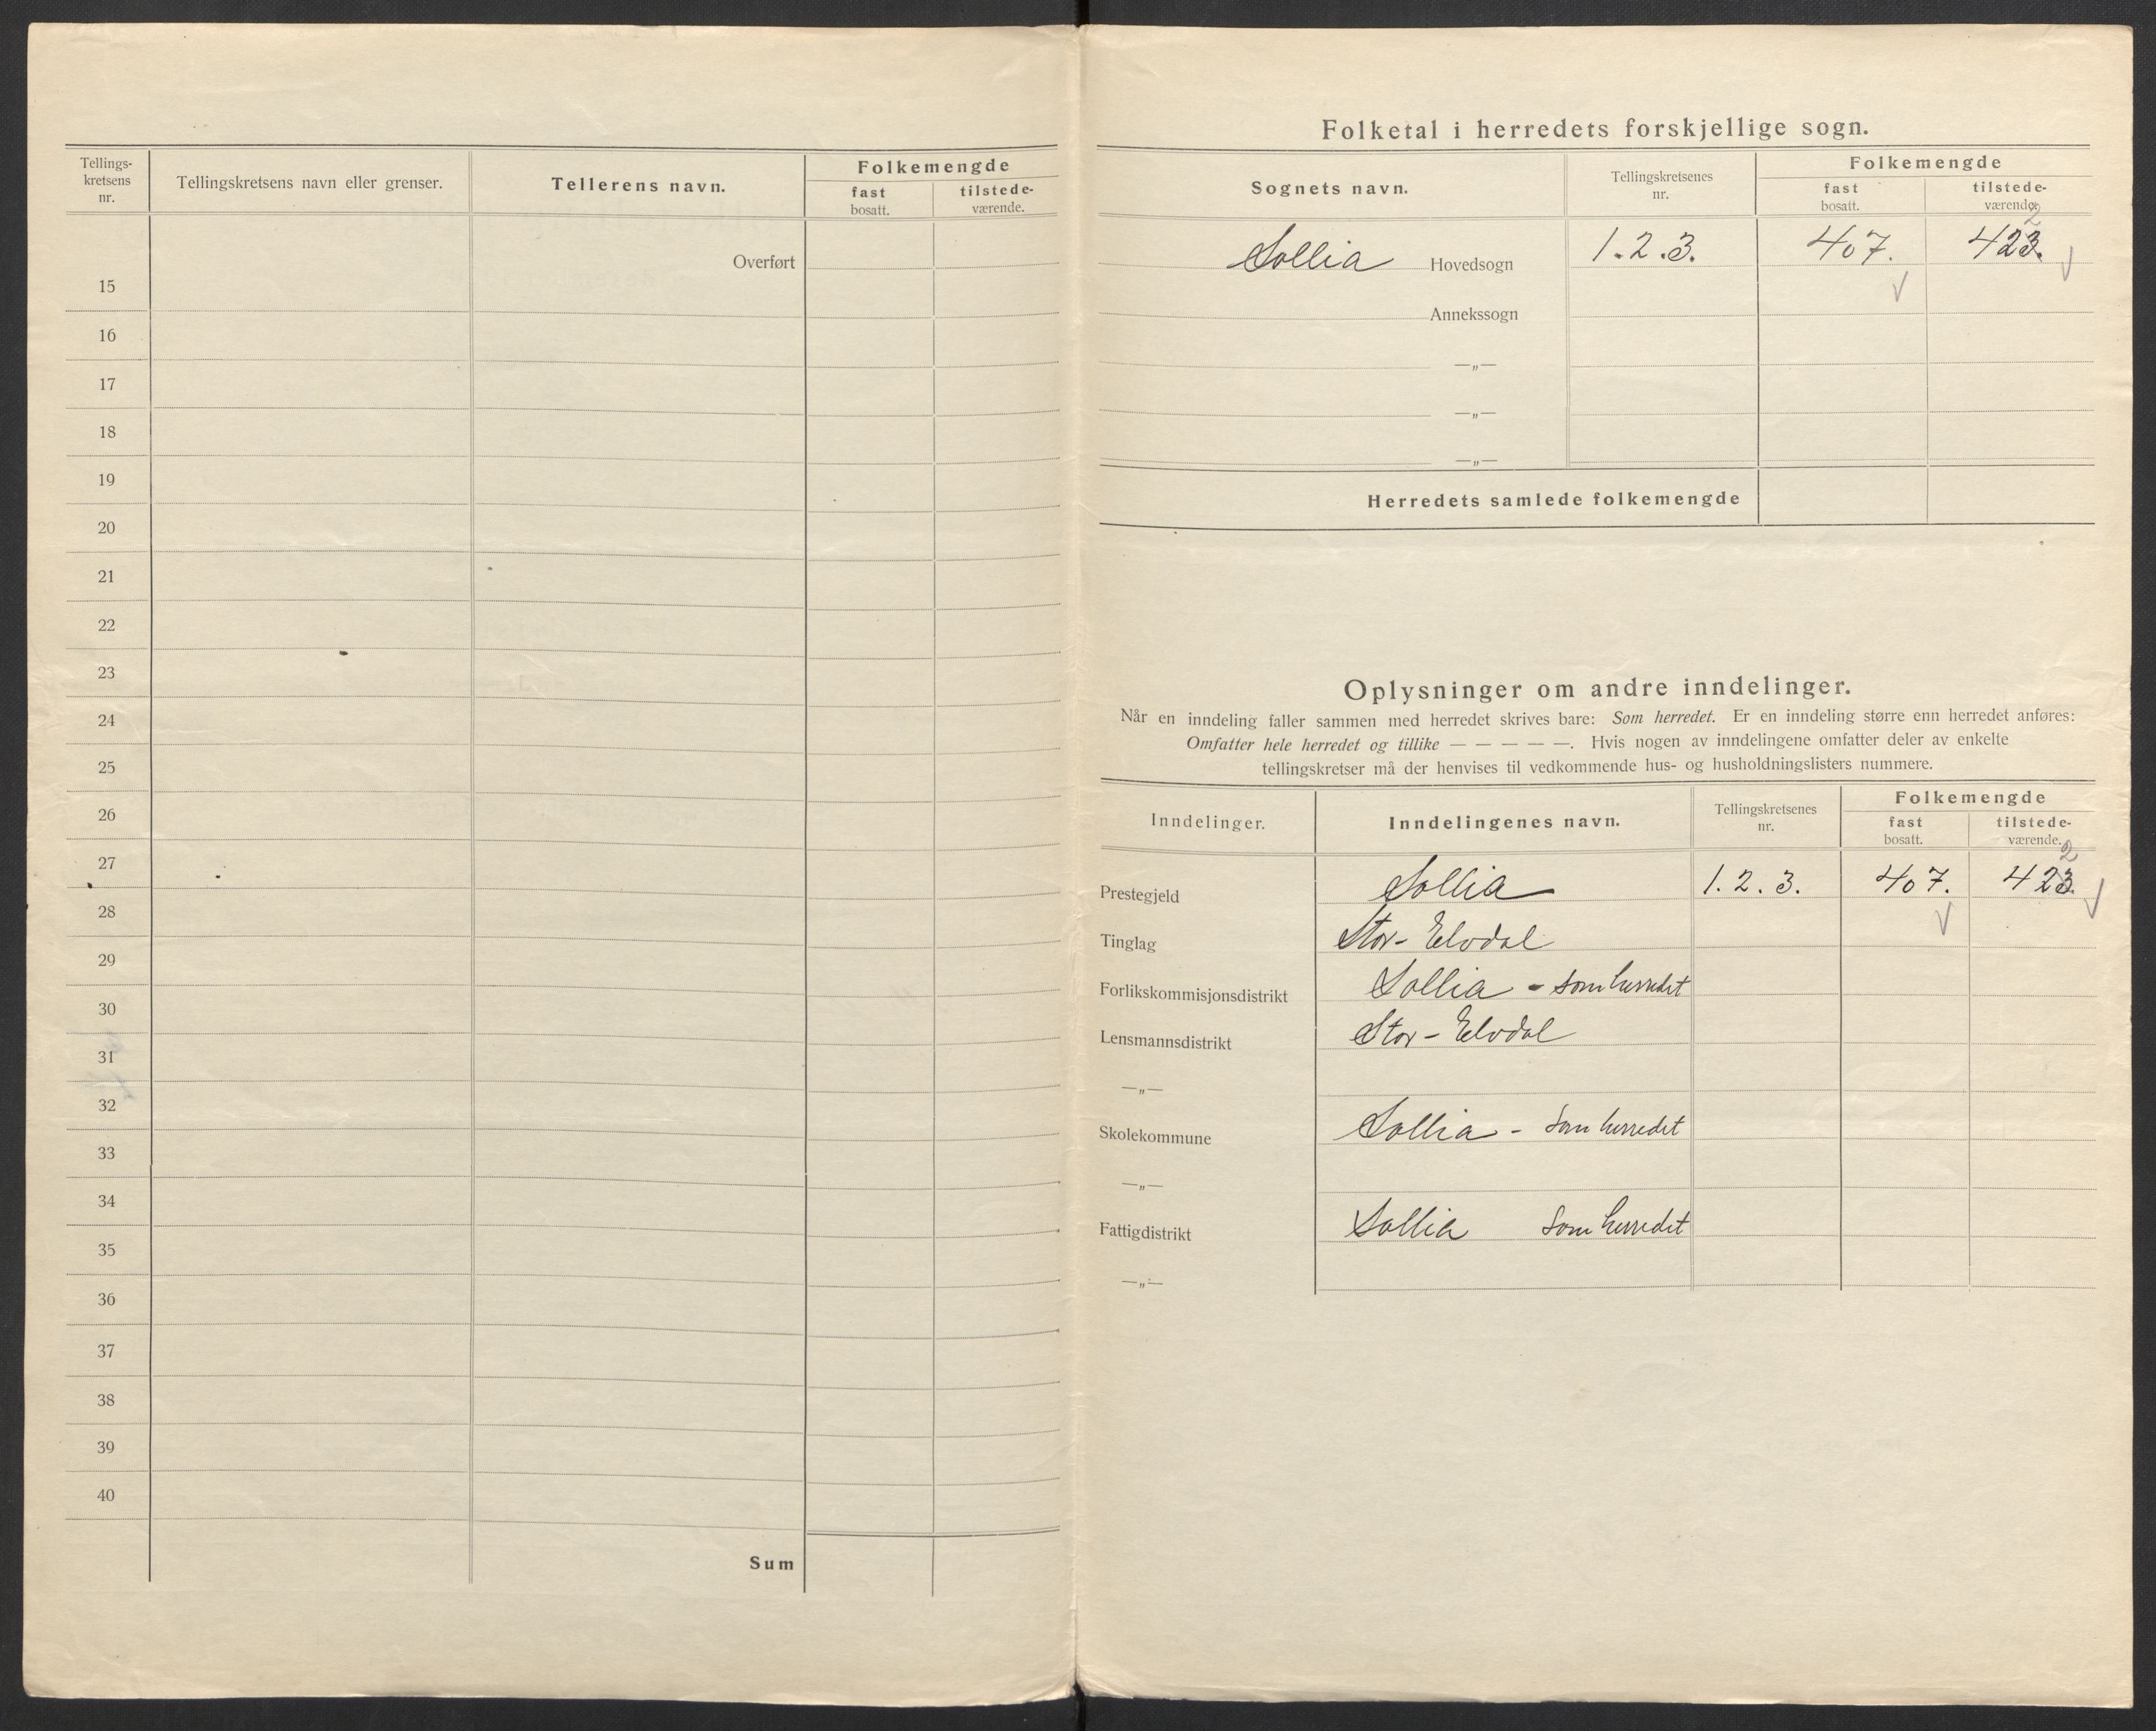 Tellings-
kretsens
nr.
Tellingskretsens navn eller grenser.
Tellerens navn.
Folkemengde
fast
bosatt.
tilstede-
værende.
Overført
15
16
17
18
19
20
21
22
23
24
25
26
27
28
29
30
31
32
33
34
35
36
37
38
39
40
Sum
Folketal i herredets forskjellige sogn.
Sognets navn.
Tellingskretsenes
nr.
Folkemengde
fast
bosatt.
tilstede-
værende.
2
Sollia Hovedsogn 1. 2. 3. 407. 423.
Annekssogn
—„—
—„—
—„—
Herredets samlede folkemengde
Oplysninger om andre inndelinger.
Når en inndeling faller sammen med herredet skrives bare: Som herredet. Er en inndeling større enn herredet anføres:
Omfatter hele herredet og tillike — — — — —. Hvis nogen av inndelingene omfatter deler av enkelte
tellingskretser må der henvises til vedkommende hus- og husholdningslisters nummere.
Inndelinger.
Inndelingenes navn.
Tellingskretsenes
nr.
Folkemengde
fast
bosatt.
tilstede-
værende.
2
Prestegjeld Sollia 1. 2. 3. 407. 423.
Tinglag Stor-Elvdal
Forlikskommisjonsdistrikt Sollia - som herredet
Lensmannsdistrikt Stor-Elvdal
—„—
Skolekommune Sollia - Som herredet
—„—
Fattigdistrikt Sollia Som herredet
—„—